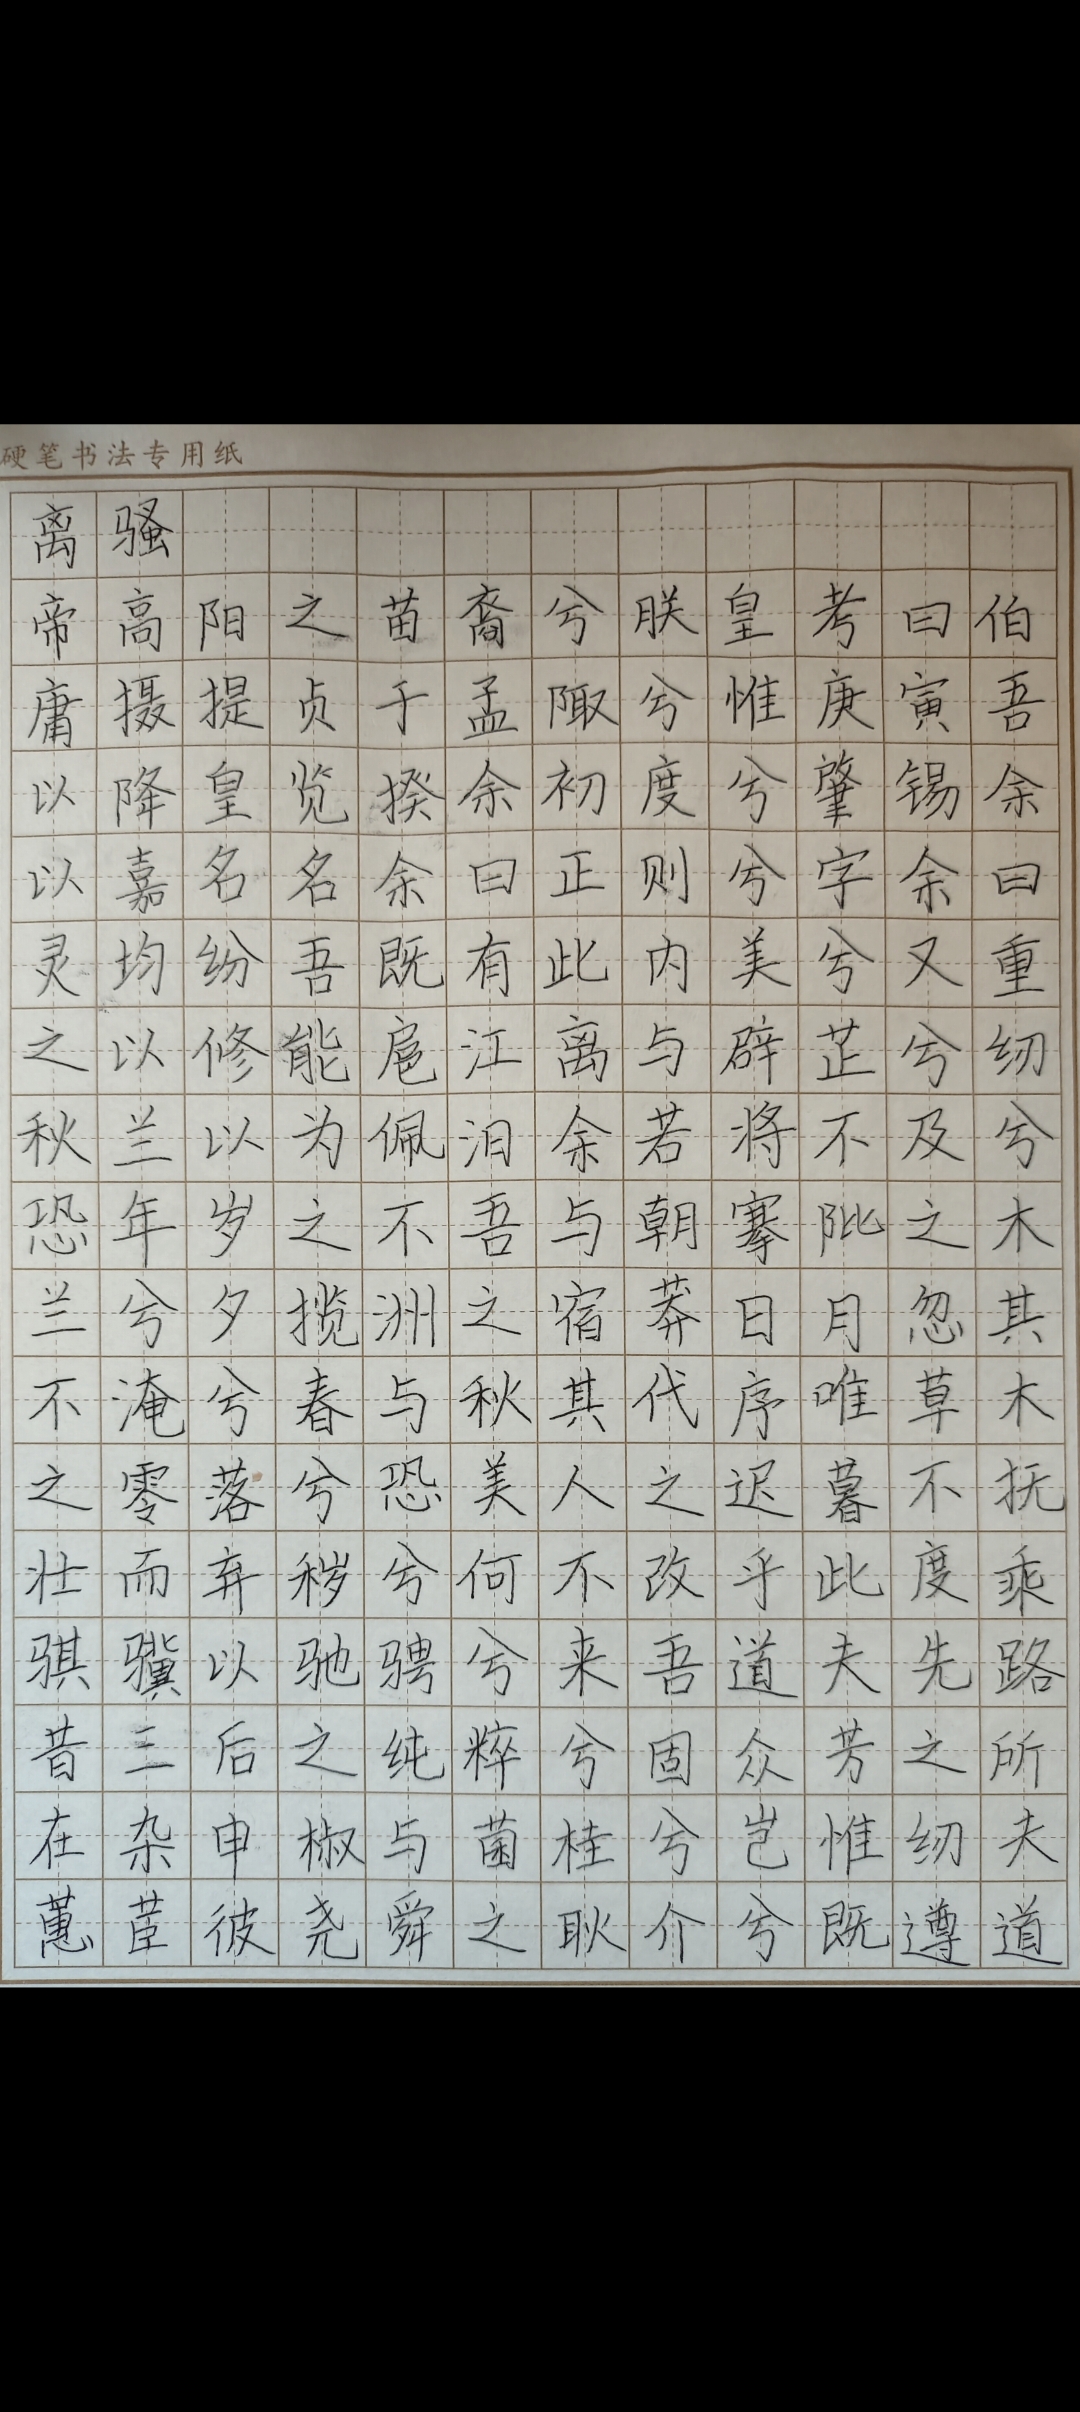 硬笔书法专用纸
离骚
帝高阳之苗裔兮朕皇考曰伯
庸摄提贞于孟陬兮惟庚寅吾
以降皇览揆余初度兮肇锡余
以嘉名名余曰正则兮字余曰
灵均纷吾既有此内美兮又重
之以修能扈江离与辟芷兮纫
秋兰以为佩汩余若将不及兮
恐年岁之不吾与朝搴阰之木
兰兮夕揽洲之宿莽日月忽其
不淹兮春与秋其代序唯草木
之零落兮恐美人之迟暮不抚
壮而弃秽兮何不改乎此度乘
骐骥以驰骋兮来吾道夫先路
昔三后之纯粹兮固众芳之所
在杂申椒与菌桂兮岂惟纫夫
蕙茞彼尧舜之耿介兮既遵道